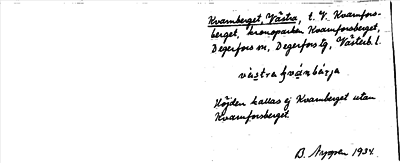 Kvarnberget, Västra, t. V. Kvarnfors-
berget, kronoparken Kvarnforsberget,
Degerfors sn, Degerfors tg, Västerb. l.
västra kvánbárja
Höjden kallas ej Kvarnberget utan
Kvarnforsberget.
B. 1934.